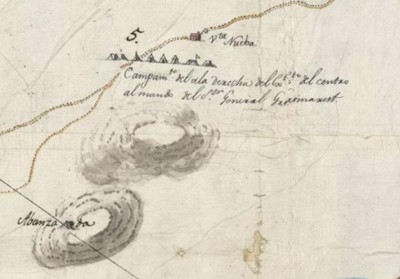 5.
Vta Nueba
Campamto. del ala derecha del Exto. del centro
al mando del Sor. General Grimarest.
Abanzada